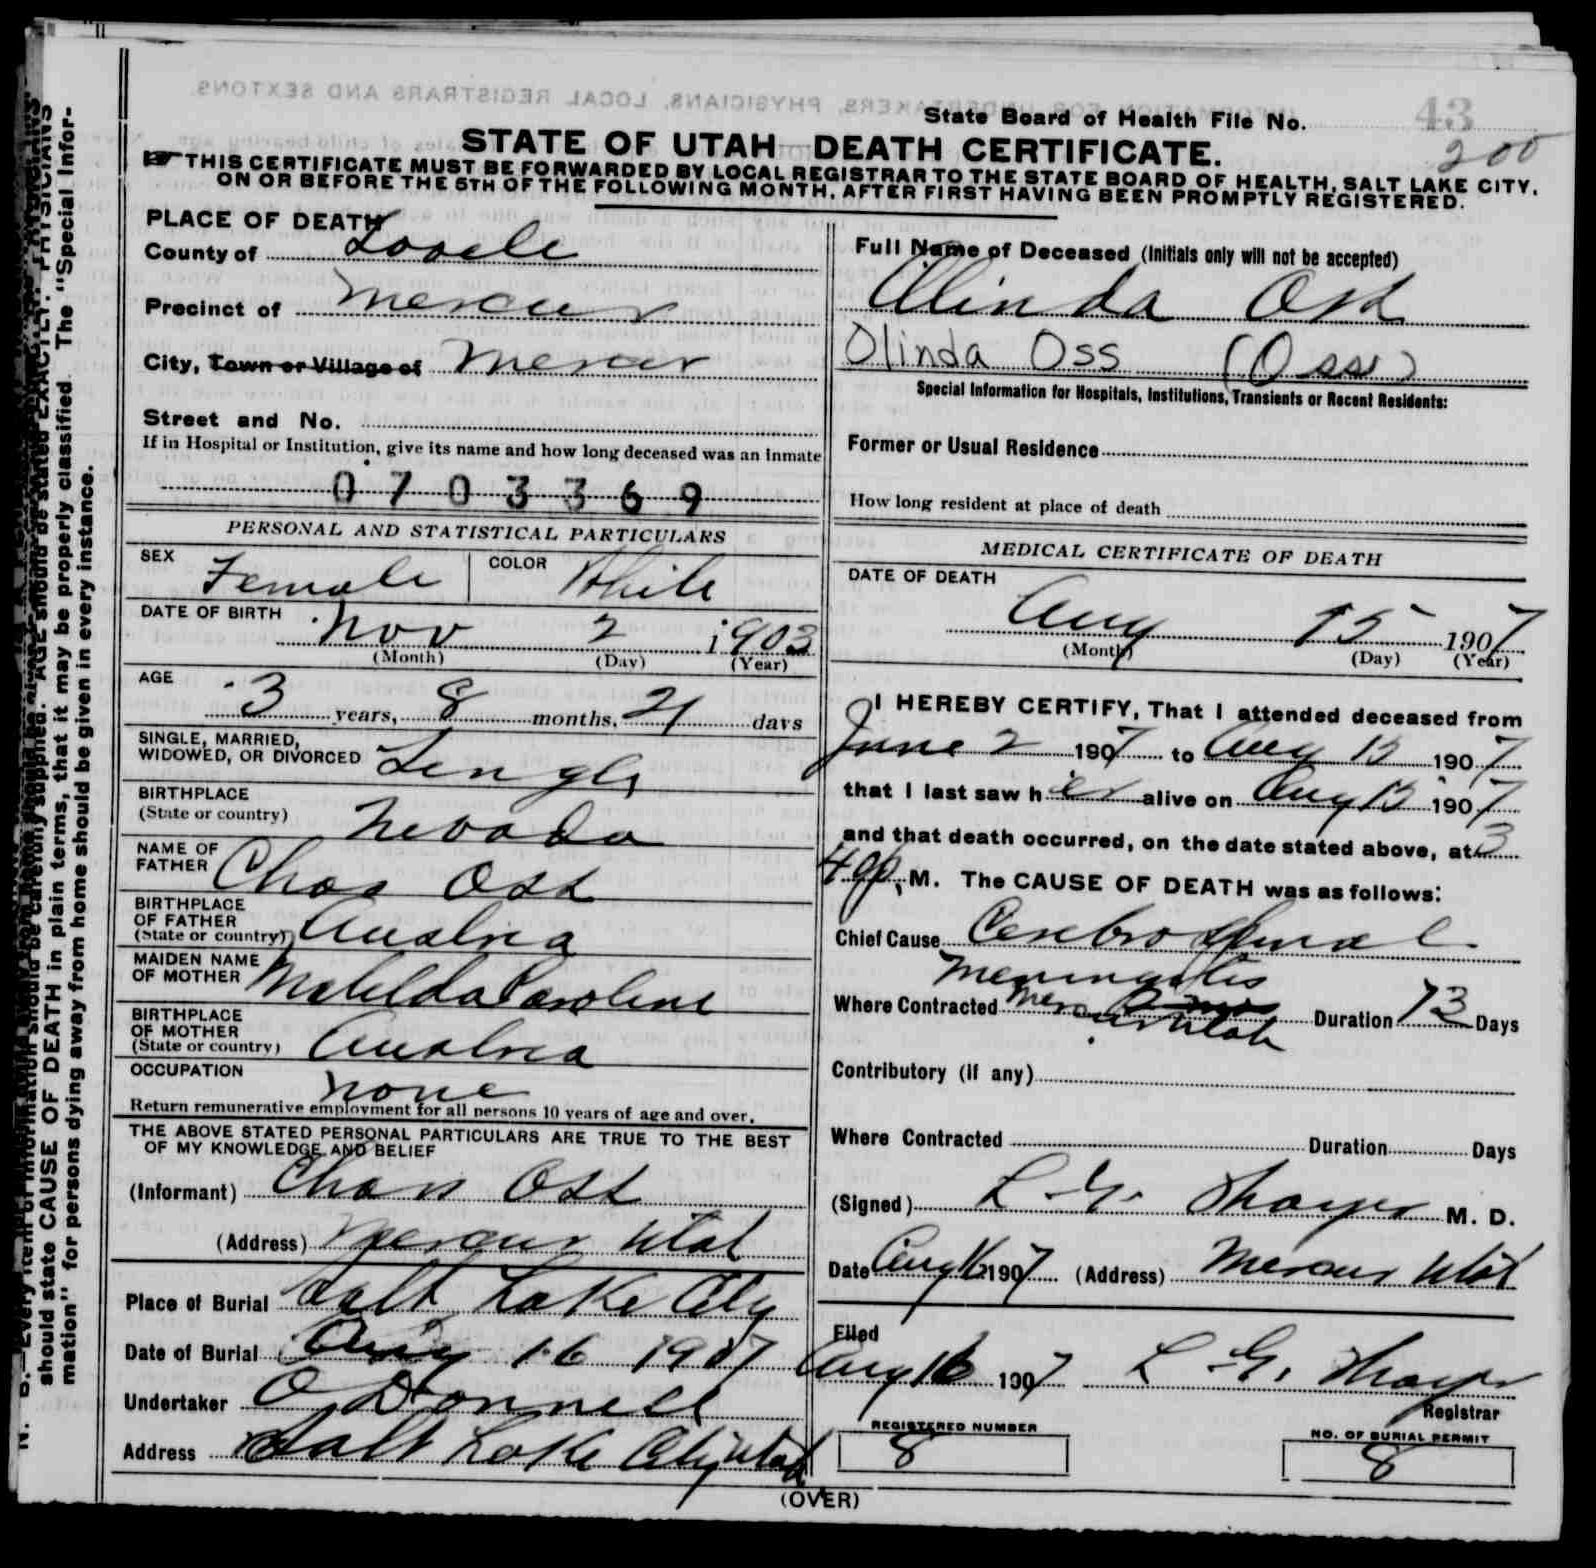 INFORMATION FOR UNDERTAKERS, PHYSICIANS, LOCAL REGISTRARS AND SEXTONS.
State Board of Health File No. 43
200
STATE OF UTAH—DEATH CERTIFICATE.
☛THIS CERTIFICATE MUST BE FORWARDED BY LOCAL REGISTRAR TO THE STATE BOARD OF HEALTH, SALT LAKE CITY,
ON OR BEFORE THE 5TH OF THE FOLLOWING MONTH, AFTER FIRST HAVING BEEN PROMPTLY REGISTERED.
PLACE OF DEATH
County of Tooele
Precinct of Mercur
City, Town or Village of Mercur
Street and No.
If in Hospital or Institution, give its name and how long deceased was an inmate
0703369
PERSONAL AND STATISTICAL PARTICULARS
SEX Female COLOR White
DATE OF BIRTH Nov 2 1903
(Month) (Day) (Year)
AGE 3 years, 8 months, 21 days
SINGLE, MARRIED,
WIDOWED, OR DIVORCED Single
BIRTHPLACE
(State or country) Nevada
NAME OF
FATHER Chas Oss
BIRTHPLACE
OF FATHER
(State or country) Austria
MAIDEN NAME
OF MOTHER Matilda Caroline
BIRTHPLACE
OF MOTHER
(State or country) Austria
OCCUPATION none
Return remunerative employment for all persons 10 years of age and over.
THE ABOVE STATED PERSONAL PARTICULARS ARE TRUE TO THE BEST
OF MY KNOWLEDGE AND BELIEF
(Informant) Chas Oss
(Address) Mercur Utah
Place of Burial Salt Lake City
Date of Burial Aug 16 1907
Undertaker O'Donnell
Address Salt Lake City Utah
Full Name of Deceased (Initials only will not be accepted)
Olinda Oss
Olinda Oss (Oss)
Special Information for Hospitals, Institutions, Transients or Recent Residents:
Former or Usual Residence
How long resident at place of death
MEDICAL CERTIFICATE OF DEATH
DATE OF DEATH
Aug 15 1907
(Month) (Day) (Year)
I HEREBY CERTIFY, That I attended deceased from
June 2 1907 to Aug 15 1907
that I last saw her alive on Aug 15 1907
and that death occurred, on the date stated above, at 3
40 p. M. The CAUSE OF DEATH was as follows:
Chief Cause Cerebro Spinal
Meningitis
Where Contracted Mercur Utah Duration 73 Days
Contributory (if any)
Where Contracted Duration Days
(Signed) L. G. Thayer M. D.
Date Aug 16 1907 (Address) Mercur Utah
Filed
Aug 16 1907 L. G. Thayer
Registrar
REGISTERED NUMBER
8
NO. OF BURIAL PERMIT
8
(OVER)
N. B.—Every item of information should be carefully supplied. AGE should be stated EXACTLY. PHYSICIANS
should state CAUSE OF DEATH in plain terms, that it may be properly classified. The "Special Infor-
mation" for persons dying away from home should be given in every instance.